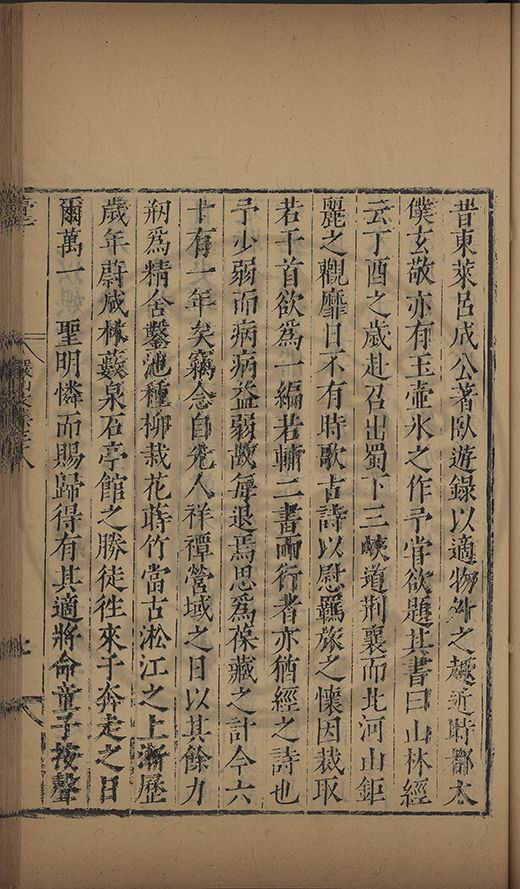 昔東萊呂成公著臥遊錄以適物外之趣近時都太
僕玄敬亦有玉壺氷之作予嘗欲題其書曰山林經
云丁酉之歲赴召出蜀下三峽道荆襄而北河山鉅
麗之觀靡日不有時歌古詩以慰羈旅之懷因裁取
若干首欲爲一編若輔二書而行者亦猶經之詩也
予少弱而病病益弱故每退焉思爲葆藏之計今六
十有一年矣竊念自先人祥禫營域之日以其餘力
剏爲精舍鑿池種柳栽花蒔竹當古淞江之上漸歷
歲年蔚成林藪泉石亭館之勝徒徃來于奔走之日
爾萬一　聖明憐而賜歸得有其適將命童子按聲